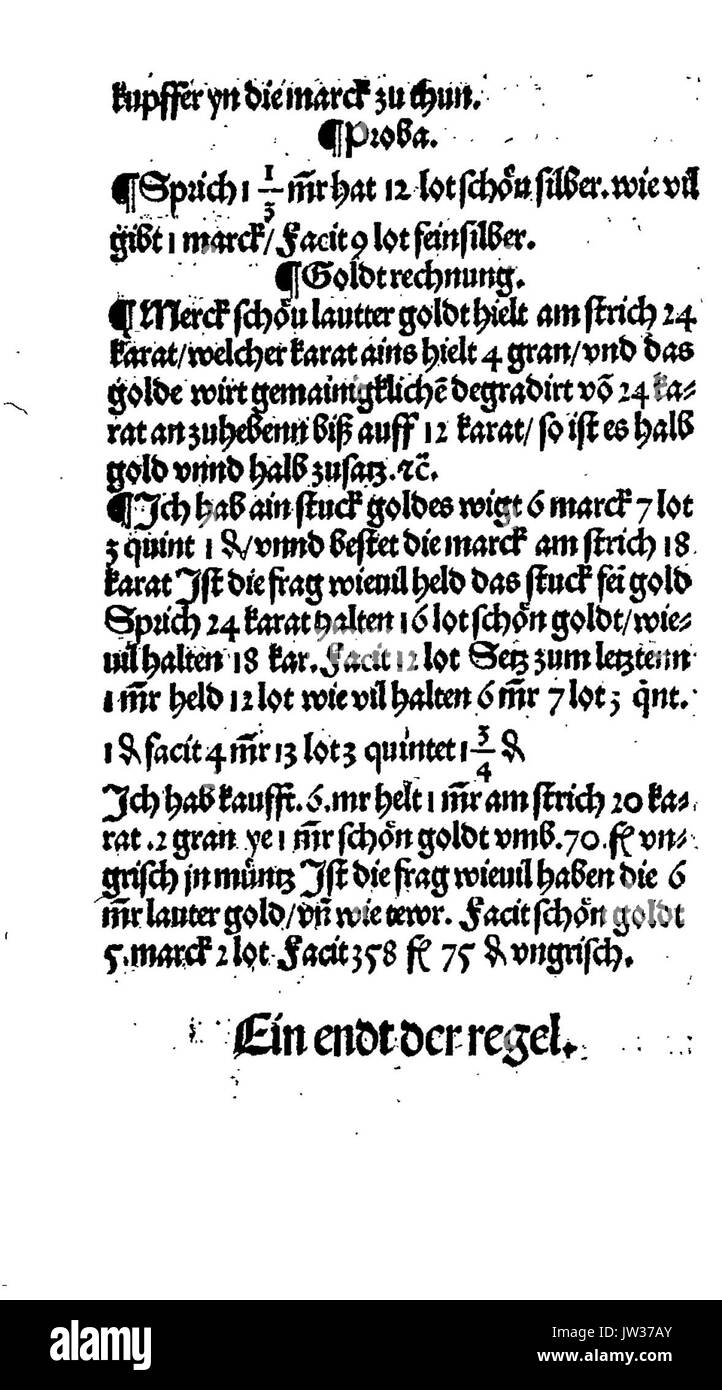 kupffer yn die marck zu thun.
¶Proba.
¶Sprich 1 1/3 m̄r hat 12 lot schön silber. wie vil
gibt 1 marck/ Facit 9 lot feinsilber.
¶Goldt rechnung.
¶Merck schön lautter goldt hielt am strich 24
karat/welcher karat ains hielt 4 gran/vnd das
golde wirt gemainigklichē degradirt vō 24 ka⸗
rat anzuhebenn biß auff 12 karat/ so ist es halb
gold vnnd halb zusatz.ꝛc̄.
¶Ich hab ain stuck goldes wigt 6 marck 7 lot
3 quint 1 ₰/vnnd bestet die marck am strich 18
karat Ist die frag wieuil held das stuck fei᷅ gold
Sprich 24 karat halten 16 lot schön goldt/wie⸗
uil halten 18 kar. Facit 12 lot Setz zum letztenn
1 m̄r held 12 lot wie vil halten 6 m̄r 7 lot 3 q̄nt.
1 ₰ facit 4 m̄r 13 lot 3 quintet 1 3/4 ₰
Ich hab kaufft. 6. mr helt 1 m̄r am strich 20 ka⸗
rat .2 gran ye 1 m̄r schön goldt vmb .70. fl vn⸗
grisch jn müntz Ist die frag wieuil haben die 6
m̄r lauter gold/vn̄ wie tewr. Facit schön goldt
5. marck 2 lot Facit 358 fl 75 ₰ vngrisch.
Ein endt der regel.
alamy stock photo
JW37AY
www.alamy.com